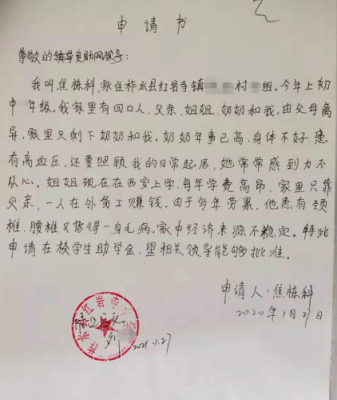 申请书
尊敬的领导资助网领导:
我叫焦栋科,家住柞水县红岩寺镇 村 组。今年上初
中 年级。我家里有四口人,父亲、姐姐、奶奶和我。由父母离
异。家里只剩下奶奶和我。奶奶年事已高,身体不好,患
有高血压,还要照顾我的日常起居,她常常感到力不
从心。姐姐现在在西安上学,每年学费高昂,家里只靠
父亲,一人在外务工赚钱,由于多年劳累,他患有颈
椎,腰椎又落得一身毛病,家中经济来源不稳定。特此
申请在校学生助学金,望相关领导能够批准。
申请人:焦栋科
2020年1月27日
红岩寺
2021.1.27